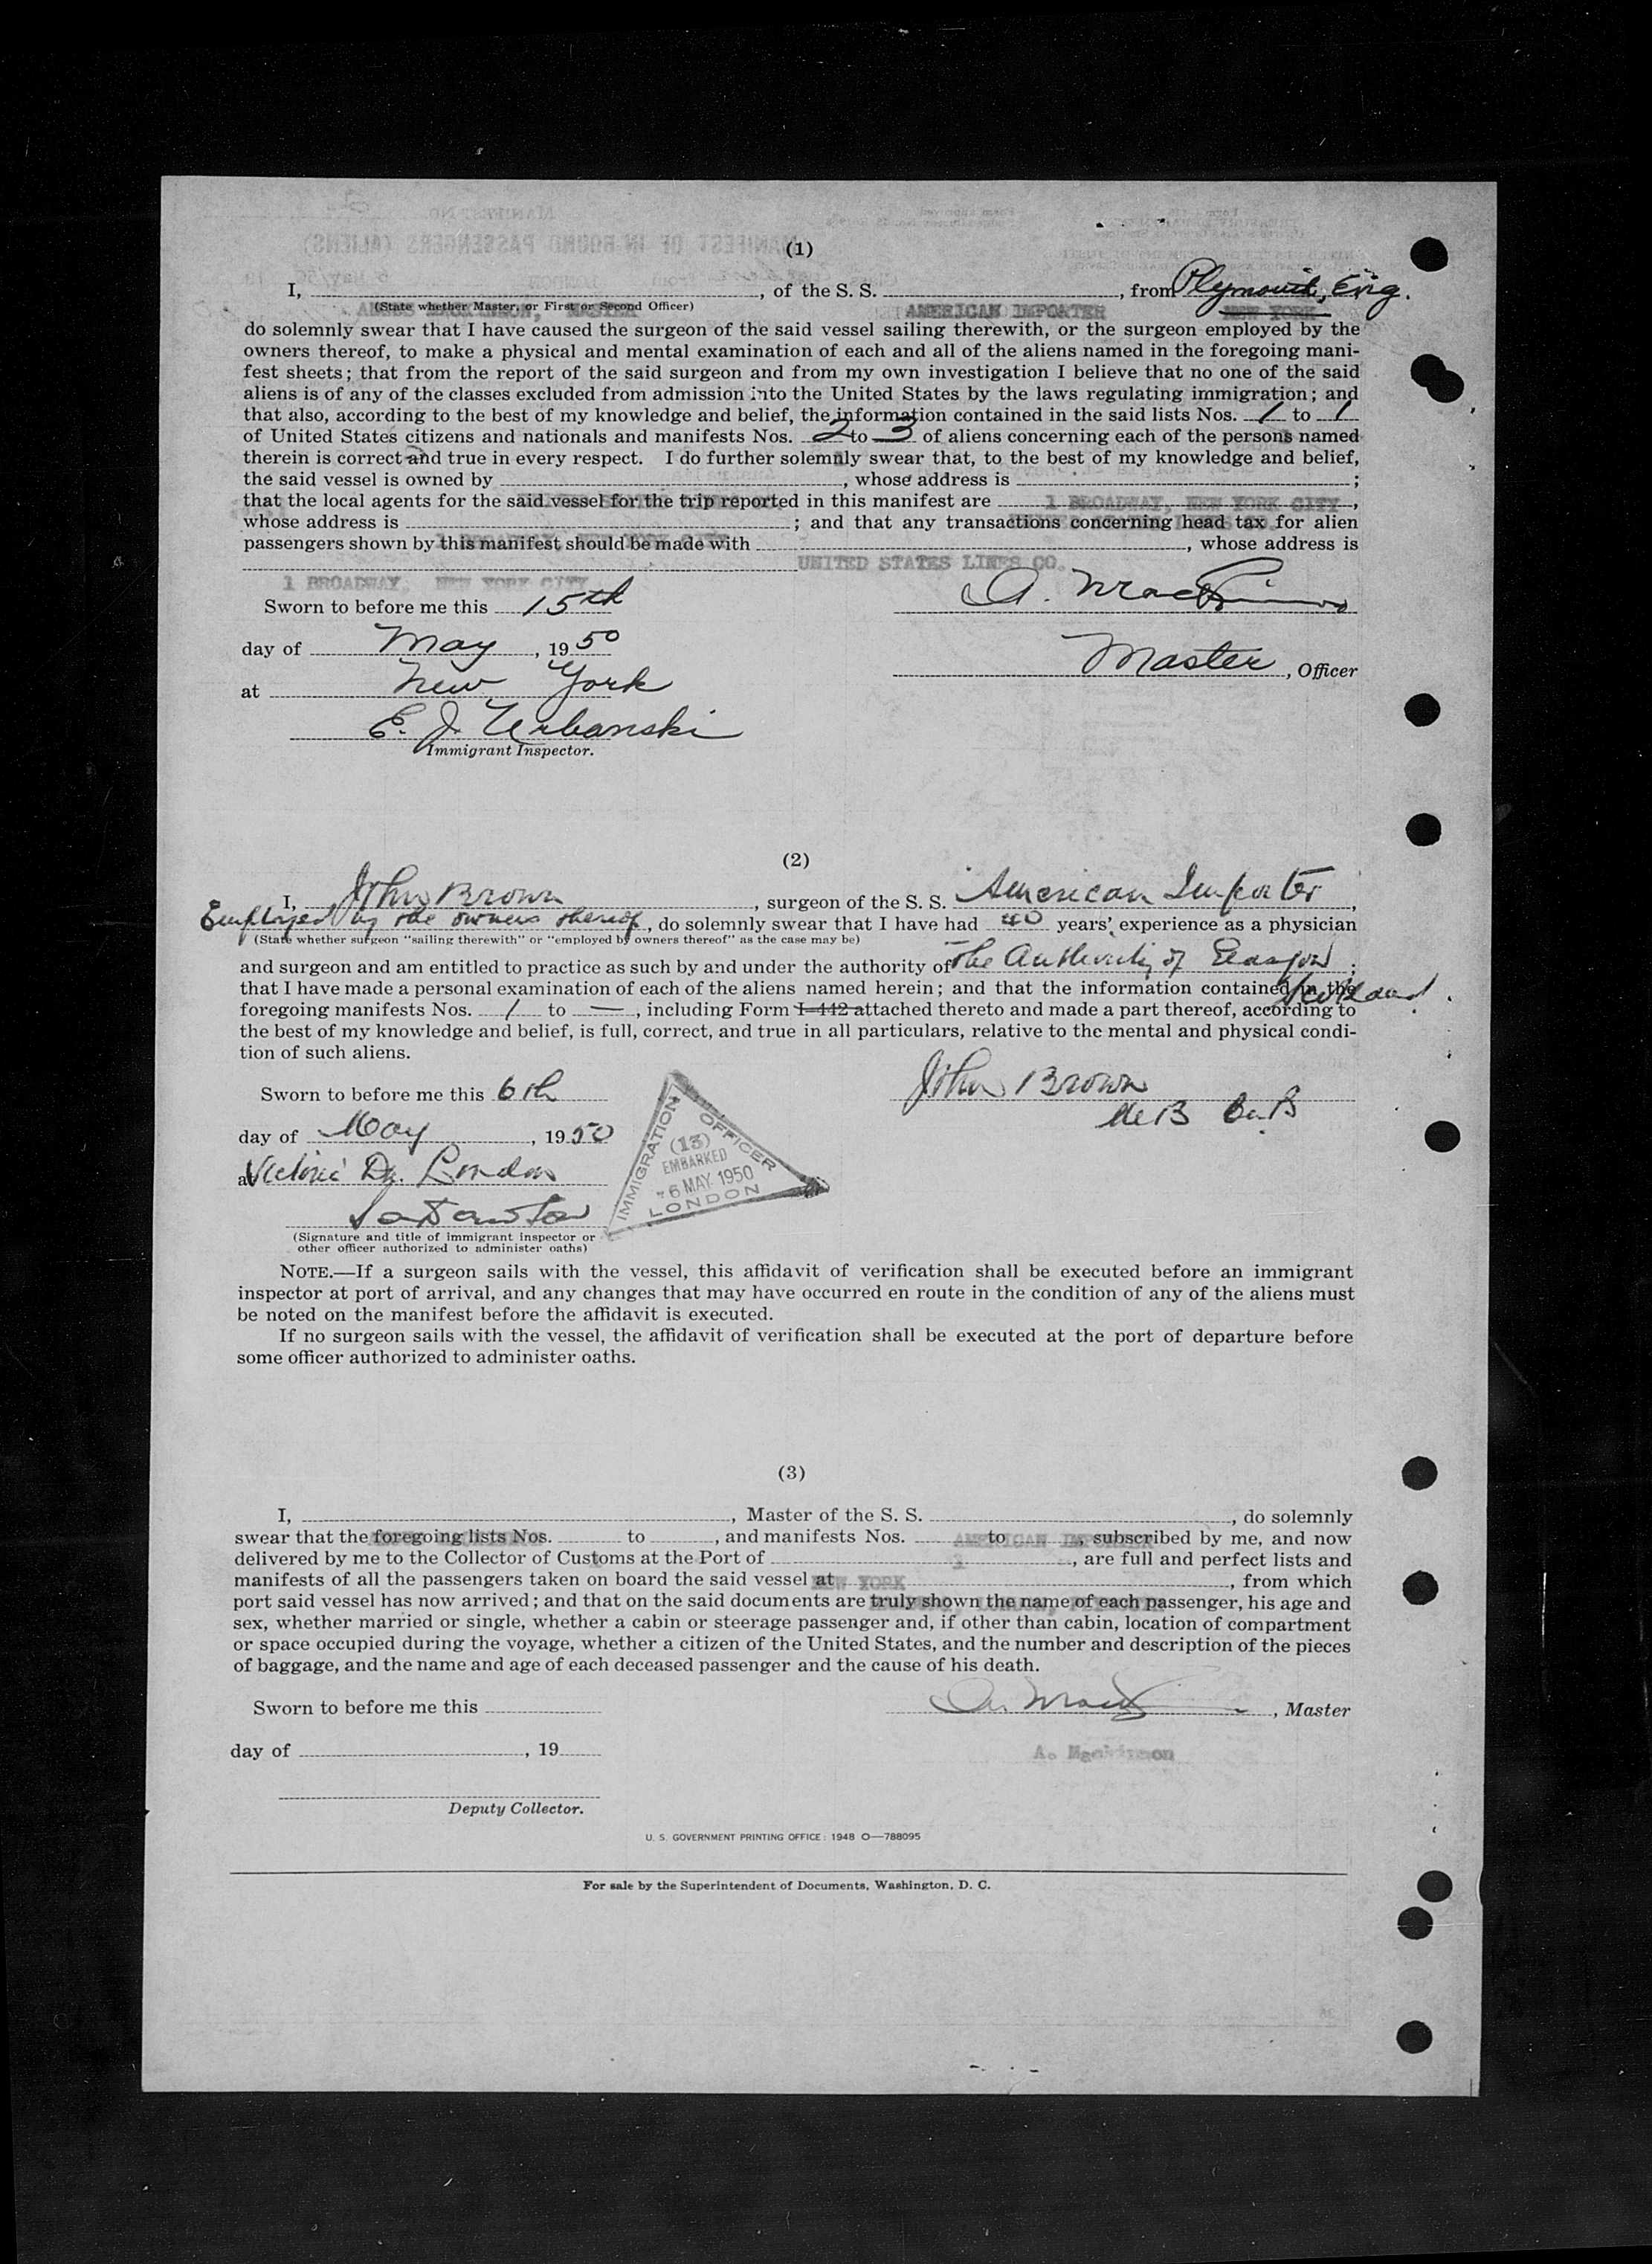 (1)
I, , of the S. S. , from Plymouth, Eng.
(State whether Master, or First or Second Officer)
MASTER AMERICAN IMPORTER NEW YORK
do solemnly swear that I have caused the surgeon of the said vessel sailing therewith, or the surgeon employed by the
owners thereof, to make a physical and mental examination of each and all of the aliens named in the foregoing mani-
fest sheets; that from the report of the said surgeon and from my own investigation I believe that no one of the said
aliens is of any of the classes excluded from admission into the United States by the laws regulating immigration; and
that also, according to the best of my knowledge and belief, the information contained in the said lists Nos. 1 to 1
of United States citizens and nationals and manifests Nos. 2 to 3 of aliens concerning each of the persons named
therein is correct and true in every respect. I do further solemnly swear that, to the best of my knowledge and belief,
the said vessel is owned by , whose address is ;
that the local agents for the said vessel for the trip reported in this manifest are 1 BROADWAY, NEW YORK CITY ,
whose address is ; and that any transactions concerning head tax for alien
passengers shown by this manifest should be made with , whose address is
UNITED STATES LINES CO.
1 BROADWAY, NEW YORK CITY
Sworn to before me this 15th
A. Mackinnon
day of May , 19 50
Master , Officer
at New York
E. J. Urbanski
Immigrant Inspector.
(2)
I, John Brown , surgeon of the S. S. American Importer ,
Employed by the owners thereof , do solemnly swear that I have had 40 years' experience as a physician
(State whether surgeon "sailing therewith" or "employed by owners thereof" as the case may be)
and surgeon and am entitled to practice as such by and under the authority of the Authority of Glasgow ;
Scotland.
that I have made a personal examination of each of the aliens named herein; and that the information contained in the
foregoing manifests Nos. 1 to — , including Form I-442 attached thereto and made a part thereof, according to
the best of my knowledge and belief, is full, correct, and true in all particulars, relative to the mental and physical condi-
tion of such aliens.
Sworn to before me this 6th
John Brown
M.B. Ch.B
day of May , 1950
at Victoria Dk. London
(Signature and title of immigrant inspector or
other officer authorized to administer oaths)
IMMIGRATION OFFICER
(13)
EMBARKED
6 MAY 1950
LONDON
NOTE.—If a surgeon sails with the vessel, this affidavit of verification shall be executed before an immigrant
inspector at port of arrival, and any changes that may have occurred en route in the condition of any of the aliens must
be noted on the manifest before the affidavit is executed.
If no surgeon sails with the vessel, the affidavit of verification shall be executed at the port of departure before
some officer authorized to administer oaths.
(3)
I, , Master of the S. S. , do solemnly
swear that the foregoing lists Nos. to , and manifests Nos. to , subscribed by me, and now
AMERICAN IMPORTER
delivered by me to the Collector of Customs at the Port of , are full and perfect lists and
manifests of all the passengers taken on board the said vessel at , from which
NEW YORK
port said vessel has now arrived; and that on the said documents are truly shown the name of each passenger, his age and
sex, whether married or single, whether a cabin or steerage passenger and, if other than cabin, location of compartment
or space occupied during the voyage, whether a citizen of the United States, and the number and description of the pieces
of baggage, and the name and age of each deceased passenger and the cause of his death.
Sworn to before me this
, Master
day of , 19
A. Mackinnon
Deputy Collector.
U. S. GOVERNMENT PRINTING OFFICE: 1948 O—788095
For sale by the Superintendent of Documents, Washington, D. C.